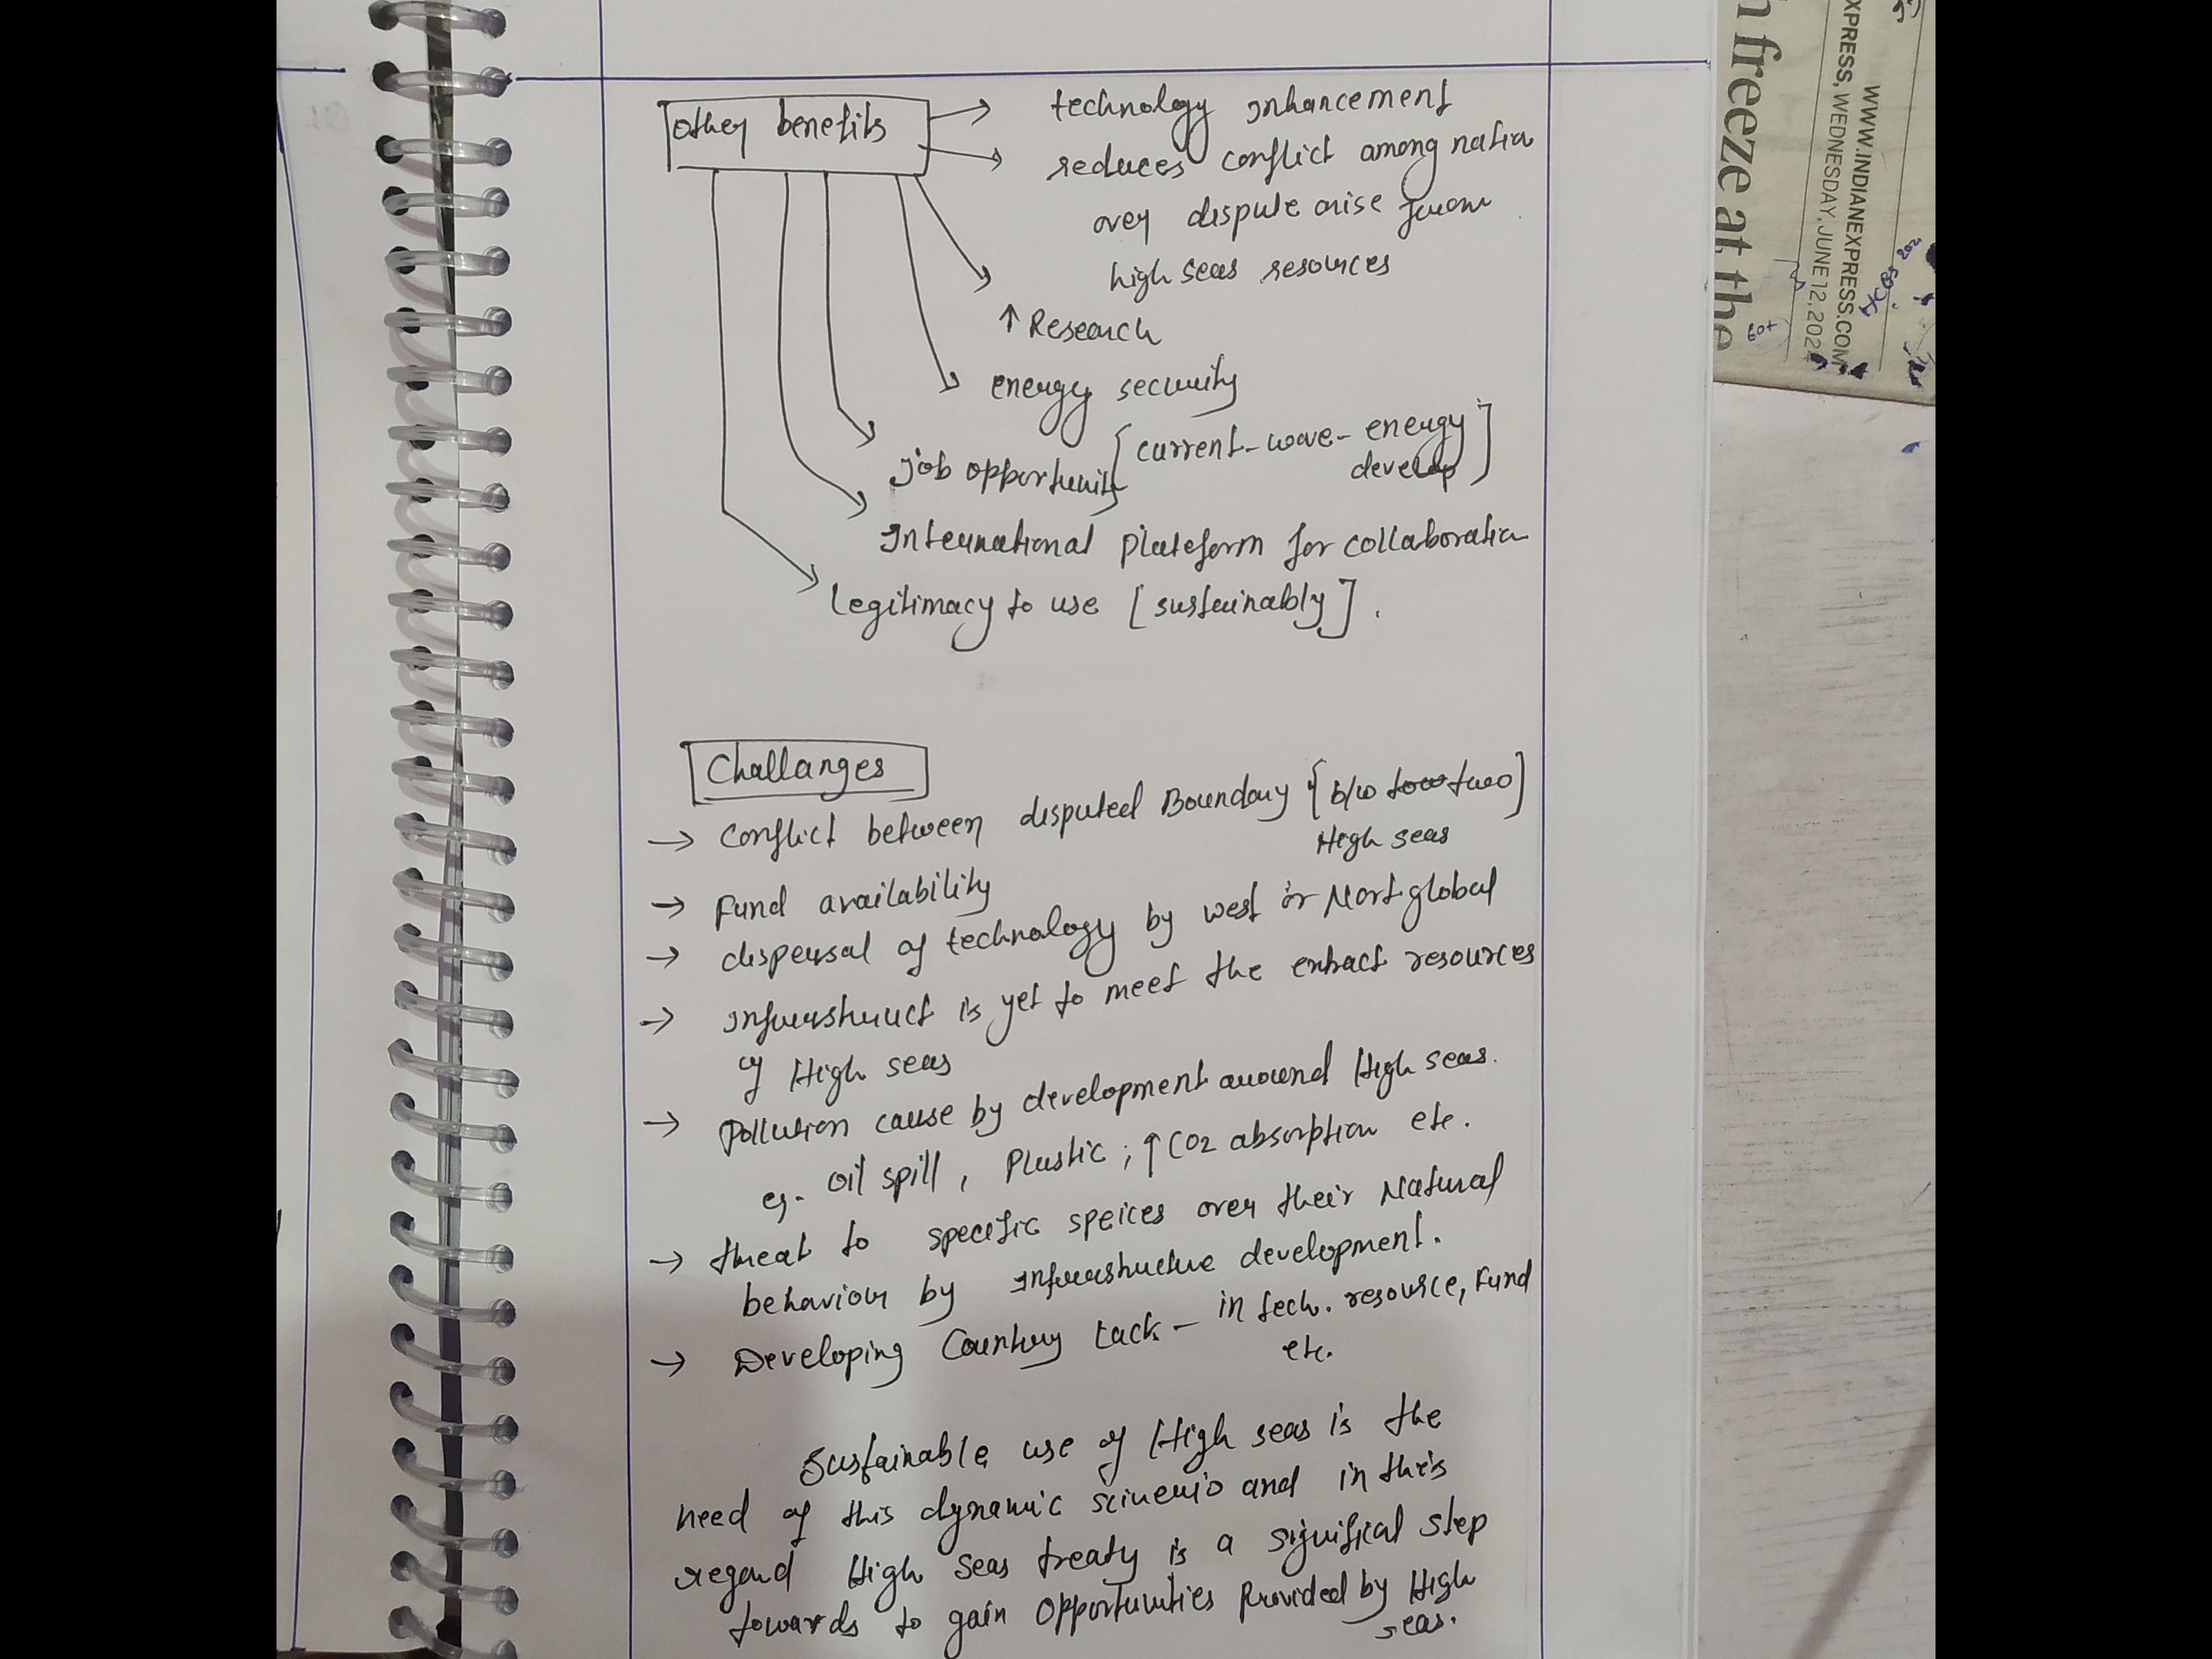 other benefits
technology inhancement
reduces conflict among nation
over dispute arise from
high seas resources
↑ Research
energy security
Job opportunity [current-wave-energy
develop]
International plateform for collaboration
Legitimacy to use [sustainably].
Challanges
→ Conflict between disputed Boundary [b/w two
High seas]
→ Fund availability
→ dispersal of technology by west or Nort global
→ infrastruct is yet to meet the extract resources
of High seas
→ Pollution cause by development around High seas.
eg- oil spill, Plastic; ↑CO2 absorption etc.
→ threat to specific speices over their Natural
behaviour by infrastructure development.
→ Developing Country Lack - in tech. resource, Fund
etc.
Sustainable use of High seas is the
need of this dynamic scinerio and in this
regard High Seas treaty is a significal step
towards to gain opportunities Provided by High
seas.
n freeze at the
WWW.INDIANEXPRESS.COM
XPRESS, WEDNESDAY, JUNE 12, 2024